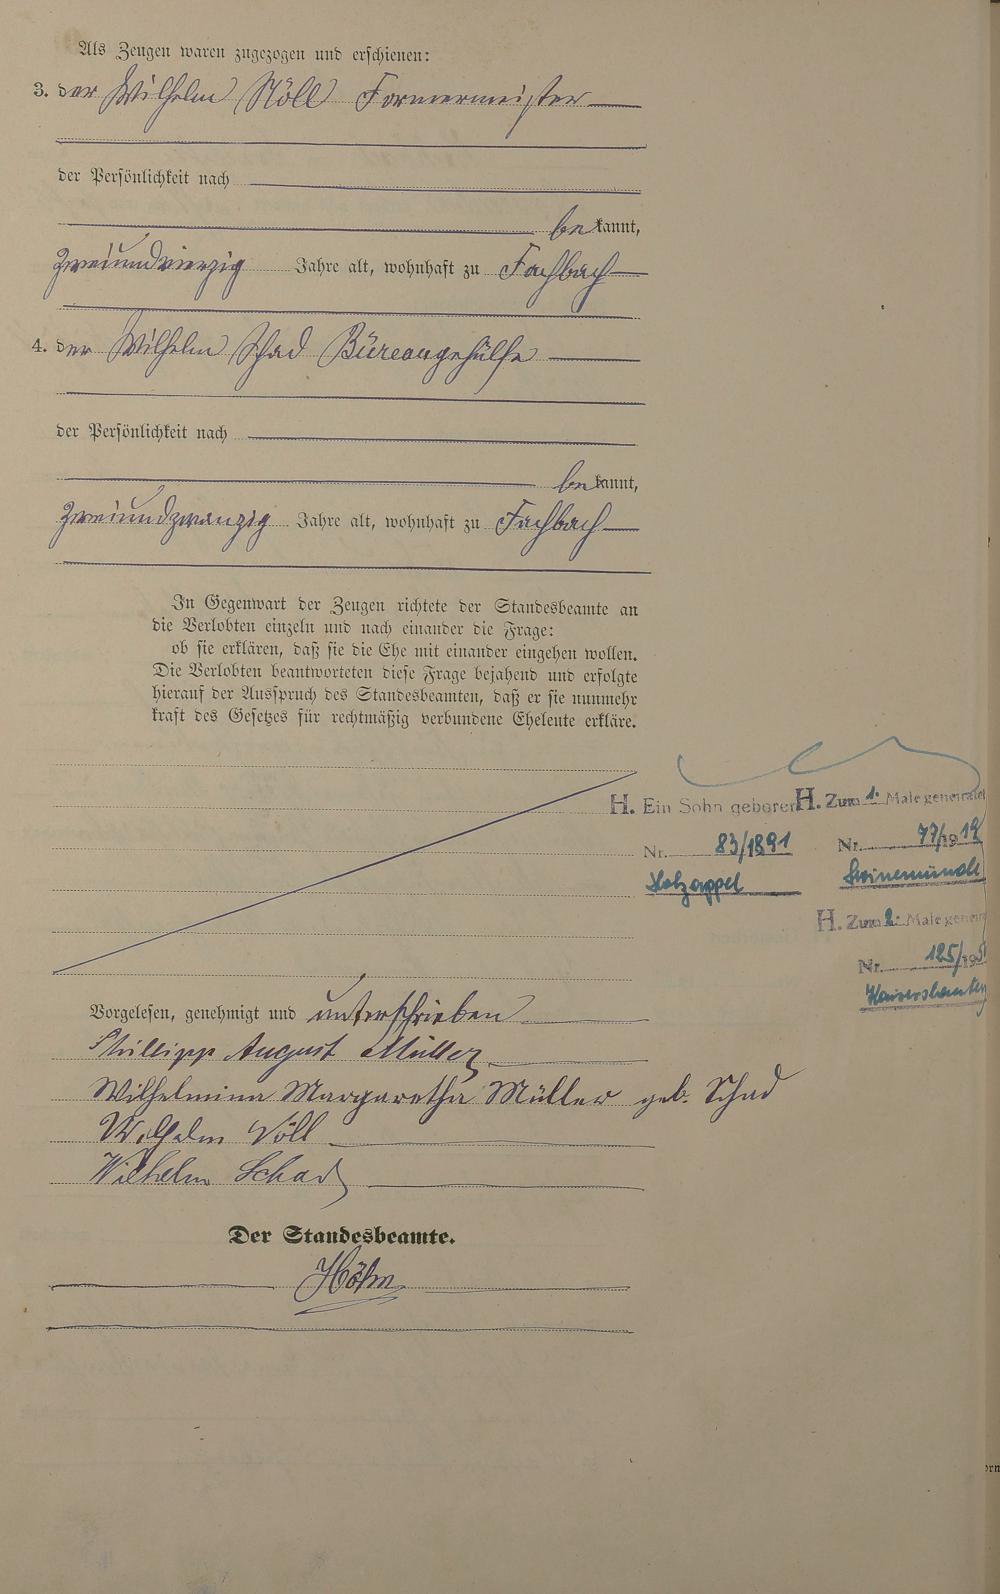 Als Zeugen waren zugezogen und erschienen:
3. der Wilhelm Nöll Formermeister
der Persönlichkeit nach
bekannt,
zweiundvierzig Jahre alt, wohnhaft zu Fachbach
4. der Wilhelm Schad Büreaugehülfe
der Persönlichkeit nach
bekannt,
zweiundzwanzig Jahre alt, wohnhaft zu Fachbach
In Gegenwart der Zeugen richtete der Standesbeamte an
die Verlobten einzeln und nach einander die Frage:
ob sie erklären, daß sie die Ehe mit einander eingehen wollen.
Die Verlobten beantworteten diese Frage bejahend und erfolgte
hierauf der Ausspruch des Standesbeamten, daß er sie nunmehr
kraft des Gesetzes für rechtmäßig verbundene Eheleute erkläre.
H. Ein Sohn geboren
Nr. 83/1891
Holzappel
H. Zum 1. Male geheiratet
Nr. 77/1919
Swinemünde
H. Zum 2. Male
Nr. 125/195
Kaiserslautern
Vorgelesen, genehmigt und unterschrieben
Phillipp August Müller
Wilhelmina Margaretha Müller geb. Schad
Wilhelm Nöll
Wilhelm Schad
Der Standesbeamte.
Höhn